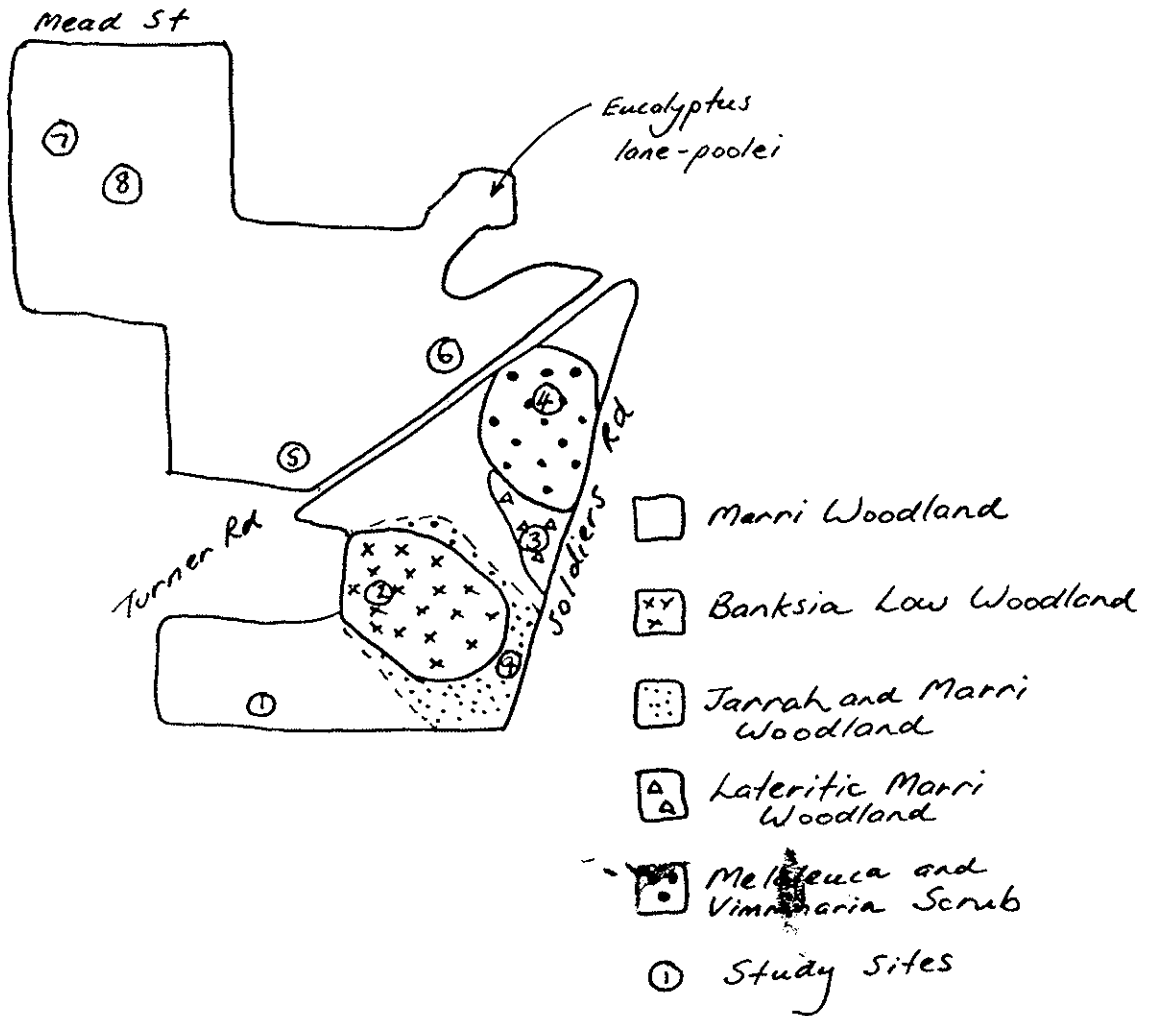 Mead St
Eucalyptus
lane-poolei
7
8
6
4
5
3
2
9
1
Soldiers Rd
Turner Rd
Marri Woodland
Banksia Low Woodland
Jarrah and Marri
Woodland
Lateritic Marri
Woodland
Melaleuca and
Scrub
1 Study Sites